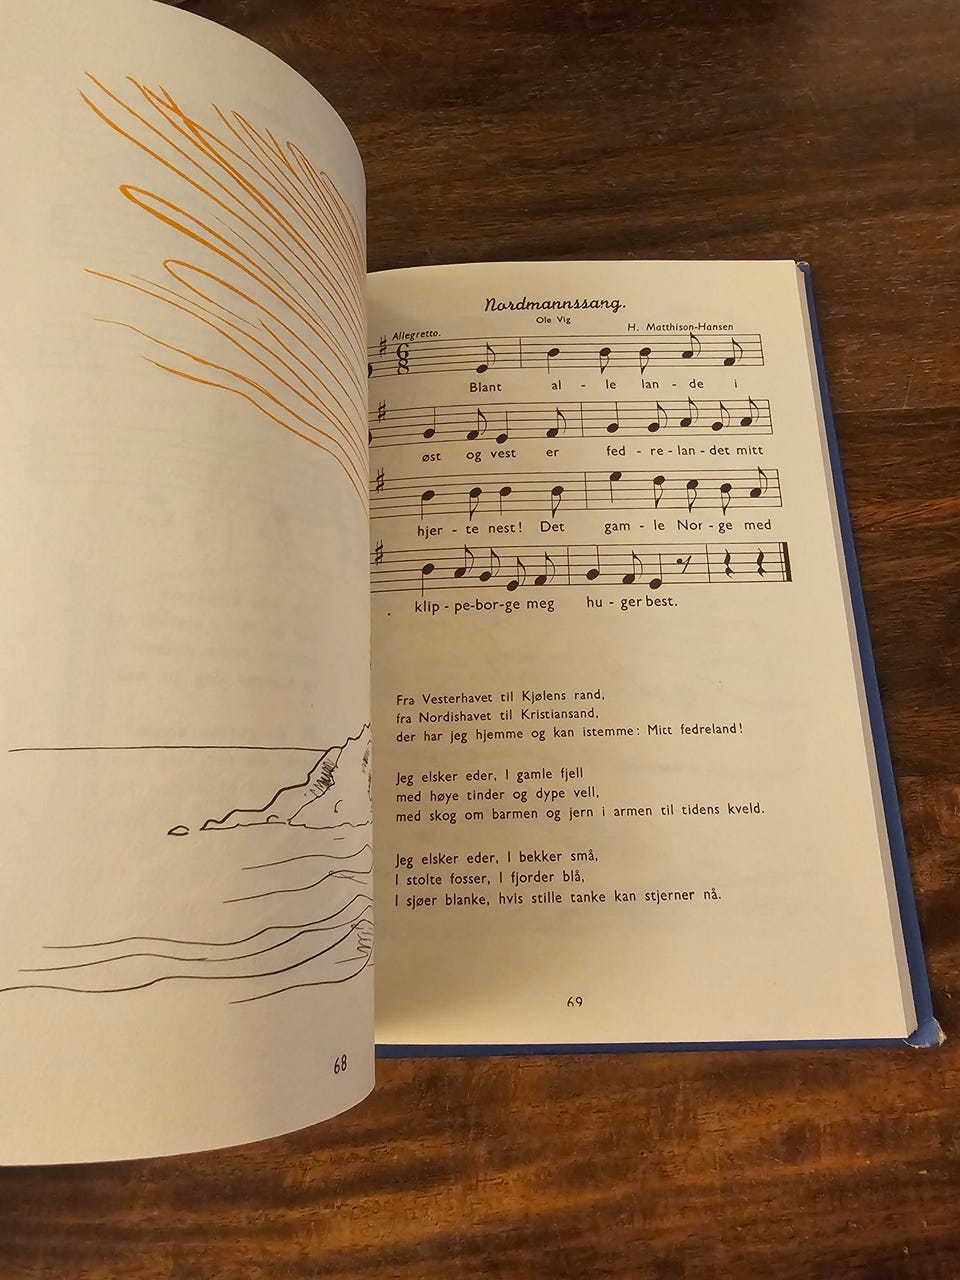 Nordmannssang.
Ole Vig
Allegretto.
H. Matthison-Hansen
6
8
Blant al - le lan - de i
øst og vest er fed - re - lan - det mitt
hjer - te nest! Det gam - le Nor - ge med
klip - pe-bor-ge meg hu - ger best.
Fra Vesterhavet til Kjølens rand,
fra Nordishavet til Kristiansand,
der har jeg hjemme og kan istemme: Mitt fedreland!
Jeg elsker eder, I gamle fjell
med høye tinder og dype vell,
med skog om barmen og jern i armen til tidens kveld.
Jeg elsker eder, I bekker små,
I stolte fosser, I fjorder blå,
I sjøer blanke, hvis stille tanke kan stjerner nå.
69
68